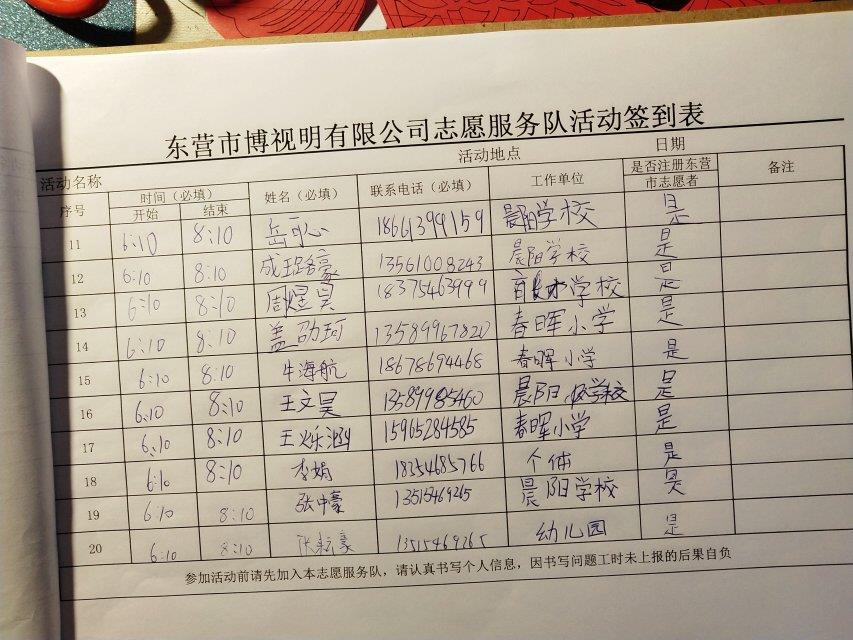 东营市博视明有限公司志愿服务队活动签到表
活动名称 活动地点 日期
序号 时间（必填） 姓名（必填） 联系电话（必填） 工作单位 是否注册东营市志愿者 备注
开始 结束
11 6:10 8:10 岳可心 18661399159 晨阳学校 是
12 6:10 8:10 成珺豪 13561008243 晨阳学校 是
13 6:10 8:10 周煜昊 18375463999 育才学校 是
14 6:10 8:10 盖劭珂 13589967820 春晖小学 是
15 6:10 8:10 牛海航 18678694468 春晖小学 是
16 6:10 8:10 王文昊 13589985460 晨阳学校 是
17 6:10 8:10 王烁涵 15965284585 春晖小学 是
18 6:10 8:10 李娟 18254685766 个体 是
19 6:10 8:10 张中豪 13515469265 晨阳学校 是
20 6:10 8:10 张 豪 13515469265 幼儿园 是
参加活动前请先加入本志愿服务队，请认真书写个人信息，因书写问题工时未上报的后果自负